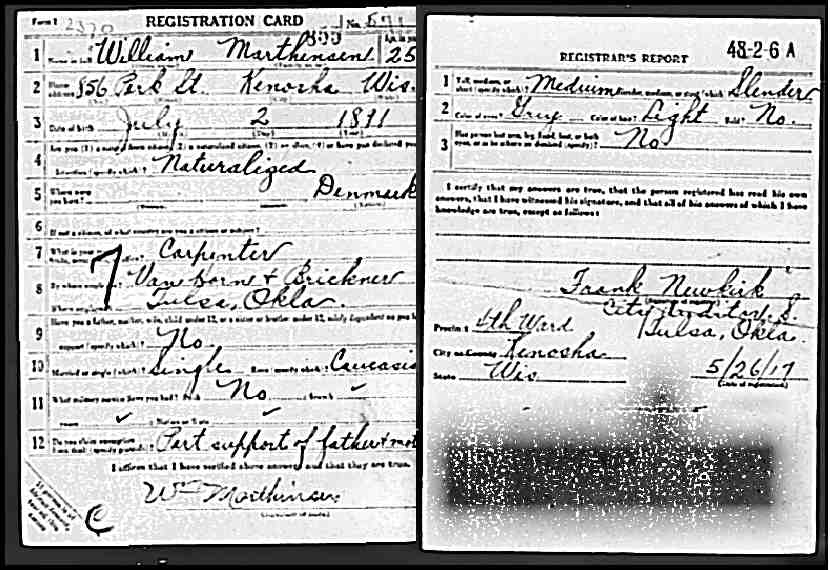 Form 1 2370 REGISTRATION CARD No. 571
1 William Marthensen 25
2 856 Park St. Kenosha Wis.
3 Date of birth July 2 1891
4 Naturalized
5 Denmark
6 If not a citizen, of what country are you a citizen or subject?
7 Carpenter
8 By whom employed? Van Horn & Brickner
Where employed? Tulsa, Okla.
9 Have you a father, mother, wife, child under 12, or a sister or brother under 12, solely dependent on you for
support (specify which)? No
10 Married or single (which)? Single Race (specify which)? Caucasia
11 What military service have you had? Rank No branch
years Nation or State
12 Do you claim exemption Part support of father & mot
I affirm that I have verified above answers and that they are true.
Wm Marthinsen
C
REGISTRAR'S REPORT 48-2-6 A
1 Tall, medium, or short (specify which)? Medium Slender, medium, or stout (which)? Slender
2 Color of eyes? Grey Color of hair? Light Bald? No.
3 Has person lost arm, leg, hand, foot, or both
eyes, or is he otherwise disabled (specify)? No
I certify that my answers are true, that the person registered has read his own
answers, that I have witnessed his signature, and that all of his answers of which I have
knowledge are true, except as follows:
Frank Newkirk
City Auditor
Precinct 4th Ward Tulsa, Okla.
City or County Kenosha
State Wis 5/26/17
(Date of registration)